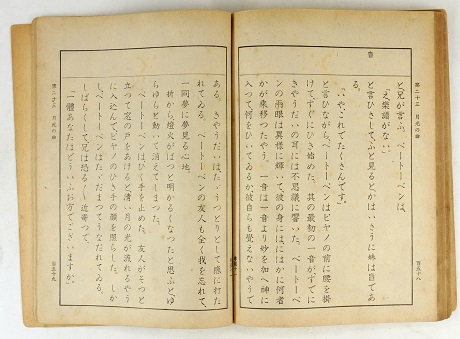 盲
第二十三 月光の曲
百五十八
と兄が言ふ。ベートーベンは、
「え、樂譜がない。」
と言ひさして、ふと見ると、かはいさうに妹は盲であ
る。
「いや、これでたくさんです。」
と言ひながら、ベートーベンはピヤノの前に腰を掛
けて、すぐにひき始めた。其の最初の一音がすでに
きやうだいの耳には不思議に響いた。ベートーベ
ンの兩眼は異様に輝いて、彼の身にはにはかに何者
かが乘移つたやう。一音は一音より妙を加へ神に
入つて、何をひいてゐるか、彼自らも覺えないやうで
ある。きやうだいは、たゞうつとりとして感に打た
れてゐる。ベートーベンの友人も全く我を忘れて、
一同夢に夢見る心地。
折から燈火がぱつと明かるくなつたと思ふと、ゆ
らゆらと動いて消えてしまつた。
ベートーベンはひく手を止めた。友人がそつと
立つて窓の戸をあけると、清い月の光が流れるやう
に入込んで、ピヤノのひき手の顔を照らした。しか
し、ベートーベンはたゞだまつてうなだれてゐる。
しばらくして兄は恐る〱近寄つて、
「一體あなたはどういふお方でございますか。」
第二十三 月光の曲
百五十九